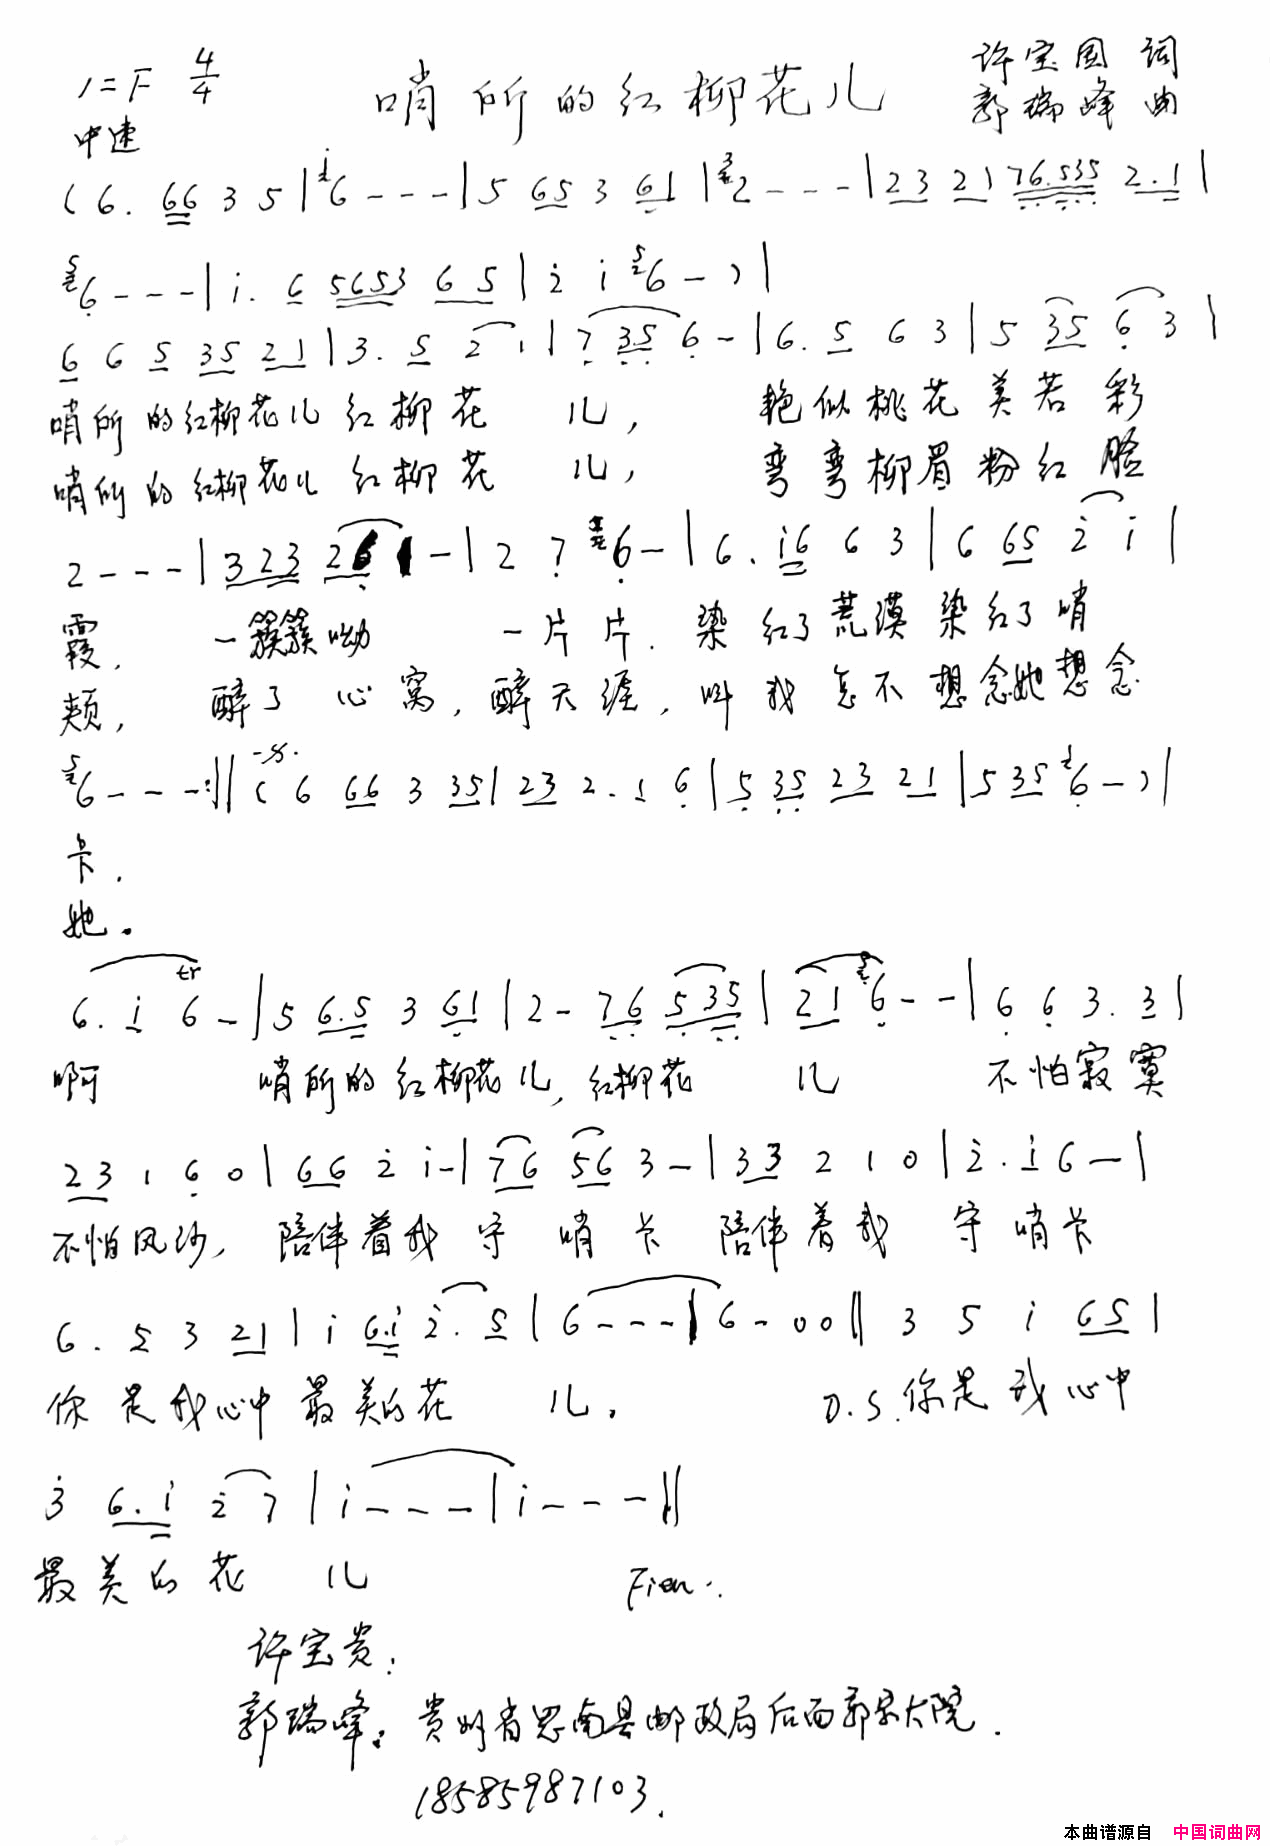 1=F 4/4 哨所的红柳花儿 许宝国 词
中速 郭瑞峰 曲
(6. 66 3 5 | i 6 - - - | 5 65 3 61 | 3 2 - - - | 23 21 76.535 2.1 |
5 6 - - - | i. 6 5653 6 5 | 2 i 5 6 - ) |
6 6 5 35 21 | 3. 5 2 1 | 7 35 6 - | 6. 5 6 3 | 5 35 6 3 |
哨所的红柳花儿 红柳花 儿, 艳似桃花 美若彩
哨所的红柳花儿 红柳花 儿, 弯弯柳眉 粉红脸
2 - - - | 3 23 26 1 - | 2 7 6 - | 6. i6 6 3 | 6 65 2 i |
霞, 一簇簇呦 一片片. 染红了荒漠 染红了哨
颊, 醉了心窝, 醉天涯, 叫我怎不想念她想念
5 6 - - - :|| ( 6 66 3 35 | 23 2. 1 6 | 5 35 23 21 | 5 35 6 - ) |
卡.
她。
6. i 6 tr - | 5 6.5 3 61 | 2 - 76 535 | 21 5 6 - - | 6 6 3. 3 |
啊 哨所的红柳花儿, 红柳花 儿 不怕寂寞
23 1 6 0 | 66 2 i - | 76 56 3 - | 33 2 1 0 | 2. i 6 - |
不怕风沙, 陪伴着我 守 哨 卡 陪伴着我 守哨卡
6. 5 3 21 | i 6.i 2. 5 | 6 - - - | 6 - 0 0 || 3 5 i 65 |
你是我心中 最美的花 儿. D.S. 你是我心中
3 6.i 2 7 | i - - - | i - - - ||
最美的花 儿 Fien.
许宝贵:
郭瑞峰: 贵州省思南县邮政局后面郭家大院.
18585987103.
本曲谱源自 中国词曲网